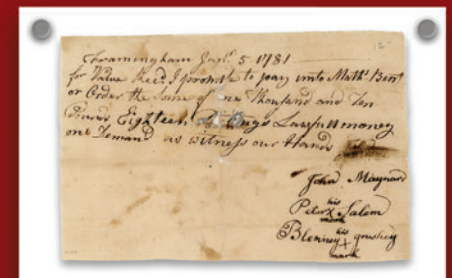 Framingham Janr. 5 1781
for Value Recd. I promise to pay unto Mathw.
or Order the Sume of one Thousand and Ten
Pounds Eighteen Lawfull money
one Demand as witness our Hands
John Maynard
his
Peter X Salem
mark
his
Blenney X Grusley
mark